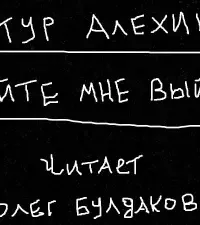 ТУР АЛЕХИ
ЙТЕ МНЕ ВЫЙ
ЧИТАЕТ
ОЛЕГ БУЛДАКОВ